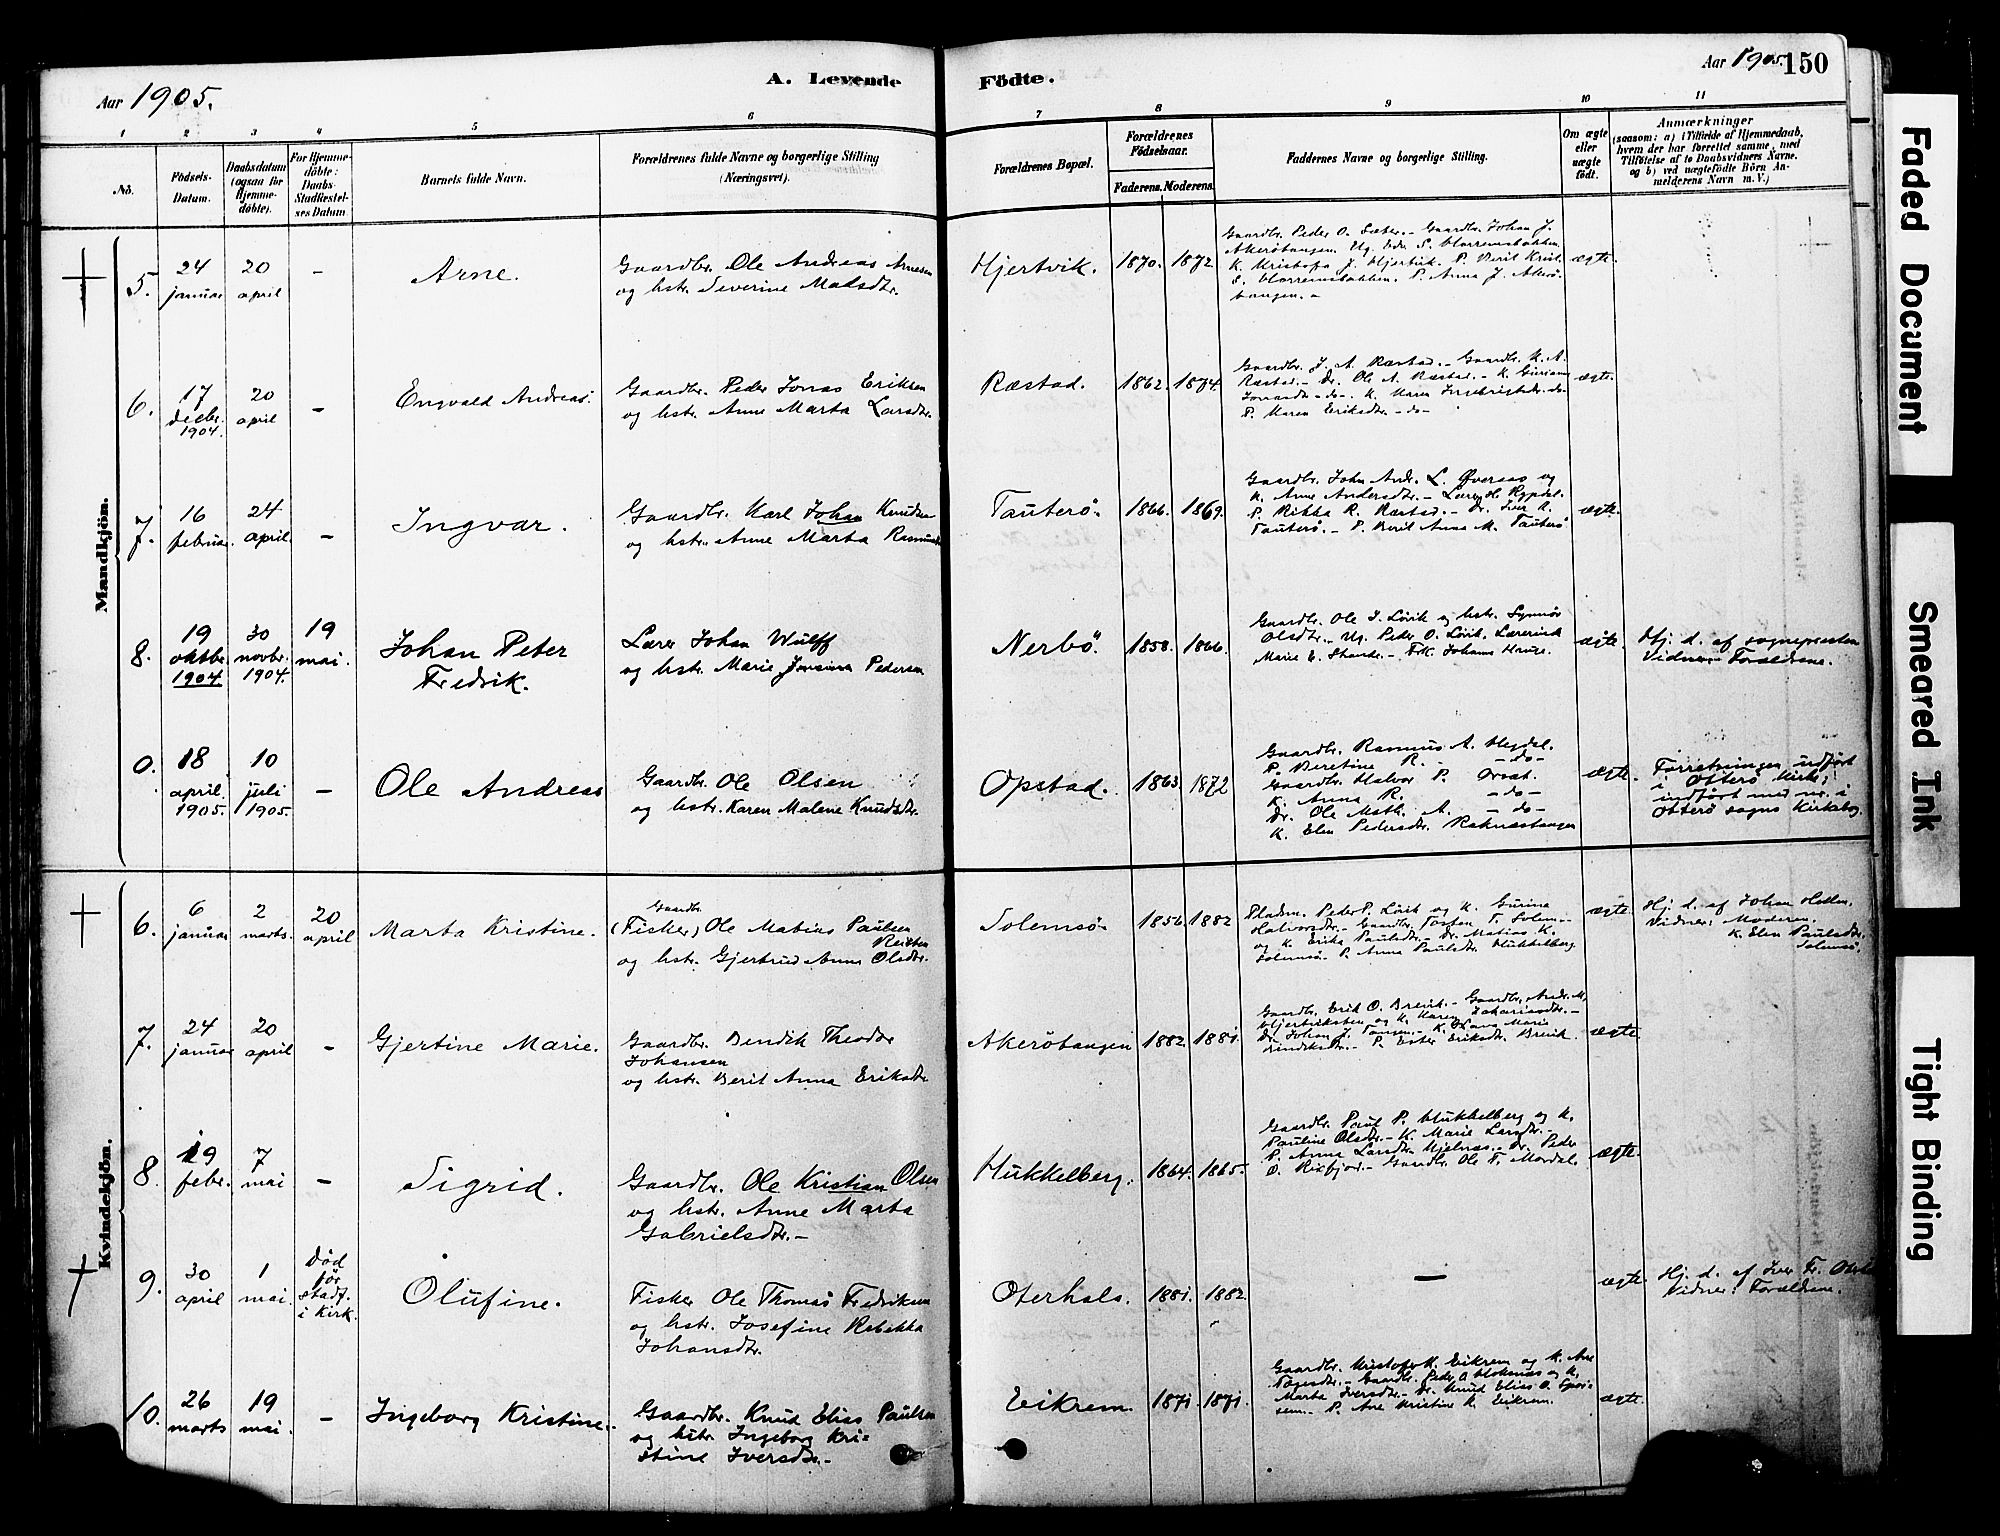 Aar 1905.
A. Levende
Födte.
Aar 1905.
150
1 2 3 4 5 6 7 8 9 10 11
No.
Födsels-
Datum.
Daabsdatum
(ogsaa för
Hjemme-
döbte).
For Hjemme-
döbte:
Daabs-
Stadfæstel-
ses Datum.
Barnets fulde Navn.
Forældrenes fulde Navne og borgerlige Stilling
(Næringsvei).
Forældrenes Bopæl.
Forældrenes
Födselsaar.
Faderens. Moderens.
Faddernes Navne og borgerlige Stilling.
Om ægte
eller
uægte
födt.
Anmærkninger
(saasom: a) i Tilfælde af Hjemmedaab,
hvem der har forrettet samme, med
Tilföielse af to Daabsvidners Navne.
og b) ved uægtefödte Börn An-
melderens Navn m. V.)
Mandkjön.
5.
24
januar
20
april
-
Arne.
Gaardbr. Ole Andreas Arnesen
og hstr. Severine Matsdtr.
Hjertvik.
1870. 1872.
Gaardbr. Peder O. Sæter. - Gaardbr. Johan J.
Akeröbangen.
K. Kristofa J. Hjertvik. P. Berit Krist.
P. Anna J. Akerö-
tangen. -
ægte.
6.
17
decbr.
1904.
20
april
-
Engvald Andreas.
Gaardbr. Peder Jonas Eriksen
og hstr. Anne Marta Larsdtr.
Ræstad.
1862. 1874.
Gaardbr. J. A. Ræstad. - Gaardbr. K. A.
Ræstad. - Dr. Ole A. Ræstad. - K.
K. Maren Ingebrigtsdtr. -do-
P. Maren Eriksdtr. -do-
ægte.
7.
16
februar.
24
april.
-
Ingvar.
Gaardbr. Karl Johan Knudsen
og hstr. Anne Marta
Tauterö.
1866. 1869.
Gaardbr. John Andr. L. Øveraas og
K. Anne Andersdtr. -
P. Rikka R. Ræstad. - Dr. Iver K.
Tauterö. - P. Berit Anna M. Tauterö
ægte.
8.
19
oktbr.
1904
30
novbr.
1904.
19
mai.
Johan Peter
Fredrik.
Lærer Johan Wulff
og hstr. Marie Jensina Pedersen
Nerbö.
1858. 1866.
Gaardbr. Ole I. Lövik og hstr. Synnöv
Olsdtr. - Ug. Peder O. Lövik. Lærerinde
Marie E. - Frk. Johanne
ægte.
Hj. d. af sognepresten
Vidner: Forældrene.
0.
18
april
1905.
10
juli
1905.
-
Ole Andreas
Gaardbr. Ole Olsen
og hstr. Karen Malene Knudsdtr.
Opstad.
1863. 1872
Gaardbr. Rasmus A.
P. Beretine R. -do-
Gaardbr. Halvor P.
K. Anna R. -do-
Dr. Ole Math. A. -do-
K. Elen Pedersdtr. Raknestangen
ægte.
Forretningen udfört
i Otterö kirke;
indfört med nr. i
Otterö sogns Kirkebog.
Kvindekjön.
6.
6
januar
2
marts.
20
april
Marta Kristine.
Gaardbr.
(Fisker) Ole Matias Paulsen
og hstr. Gjertrud Anne Olsdtr.
Solemsö.
1856. 1882
Pladsm. Peder P. Lövik og K. Gurine
Halvorsdtr. - Gaardbr. Tosten T. Solem-
og K. Erika Paulsdtr. - Dr. Matias K.
Solemsö. P. Anna Paulsdtr. Hukkelberg
ægte.
Hj. d. af Johan
Vidner: Moderen.
K. Elen Paulsdtr.
Solemsö.
7.
24
januar
20
april
-
Gjertine Marie.
Gaardbr. Bendik Theodor
Johansen
og hstr. Berit Anna Eriksdtr
Akeröbangen
1882. 1881.
Gaardbr. Erik O. Breivik. - Gaardbr. Andr. M.
og K. Karen Zakariasdtr. -
Dr. Johan J. Tangen. - K. Marie
P. Ester Eriksdtr. Breivik.
ægte
8.
19
febr.
7
mai
-
Sigrid.
Gaardbr. Ole Kristian Olsen
og hstr. Anne Marta
Gabrielsdtr. -
Hukkelberg.
1864. 1865.
Gaardbr. Paul P. Hukkelberg og K.
Pauline Olsdtr. - K. Marie Larsdtr. -
P. Anna Larsdtr. Hjelnes. - Dr. Peder
O. - Gaardbr. Ole T. Mordal.
ægte.
9.
30
april
1
mai.
Död
för
stadf.
i kirk.
Olufine.
Fisker Ole Thomas Fredriksen
og hstr. Josefine Rebekka
Johansdtr.
Oterhals.
1881. 1882.
-
ægte.
Hj. d. af Iver Fr.
Vidner: Forældrene.
10.
26
marts
19
mai.
-
Ingeborg Kristine.
Gaardbr. Knud Elias Paulsen
og hstr. Ingeborg Kri-
stine Iversdtr. -
Eikrem
1871. 1871.
Gaardbr. Kristofer K. Eikrem og K. Ane
Gaardbr. Peder og K.
Marta Iversdtr. - Dr. Knud Elias O.
P. Ane Kristine K. Eikrem.
ægte.
Faded Document
Smeared Ink
Tight Binding